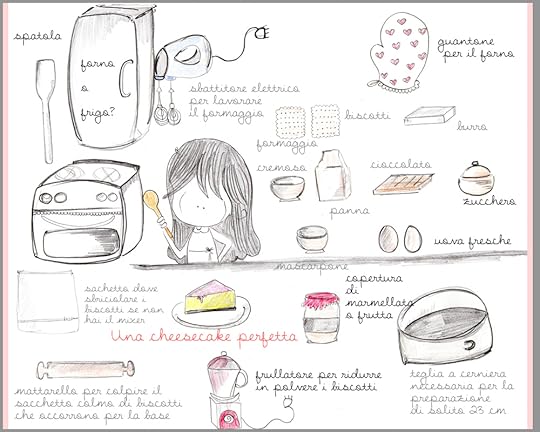 spatola
forno
o
frigo?
sbattitore elettrico
per lavorare
il formaggio
guantone
per il forno
biscotti
burro
formaggio
cremoso
panna
cioccolato
zucchero
mascarpone
uova fresche
sachetto dove
sbriciolare i
biscotti se non
hai il mixer
Una cheesecake perfetta
copertura
di
marmellata
o frutta
mattarello per colpire il
sacchetto colmo di biscotti
che occorrono per la base
frullatore per ridurre
in polvere i biscotti
teglia a cerniera
necessaria per la
preparazione
di solito 23 cm